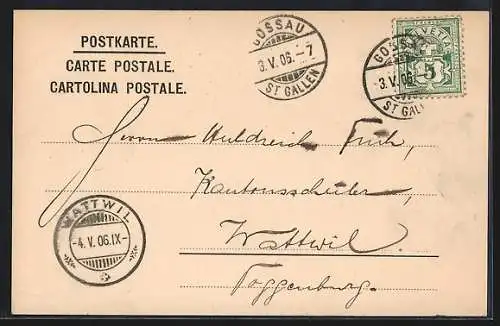 POSTKARTE.
CARTE POSTALE.
CARTOLINA POSTALE.
GOSSAU
3.V.06.-7
ST GALLEN
HELVETIA
5
GOSSAU
3.V.06.-
ST GALLEN
Herrn Huldreich
Kantonsschüler,
Wattwil.
Toggenburg.
WATTWIL
-4.V.06.IX-